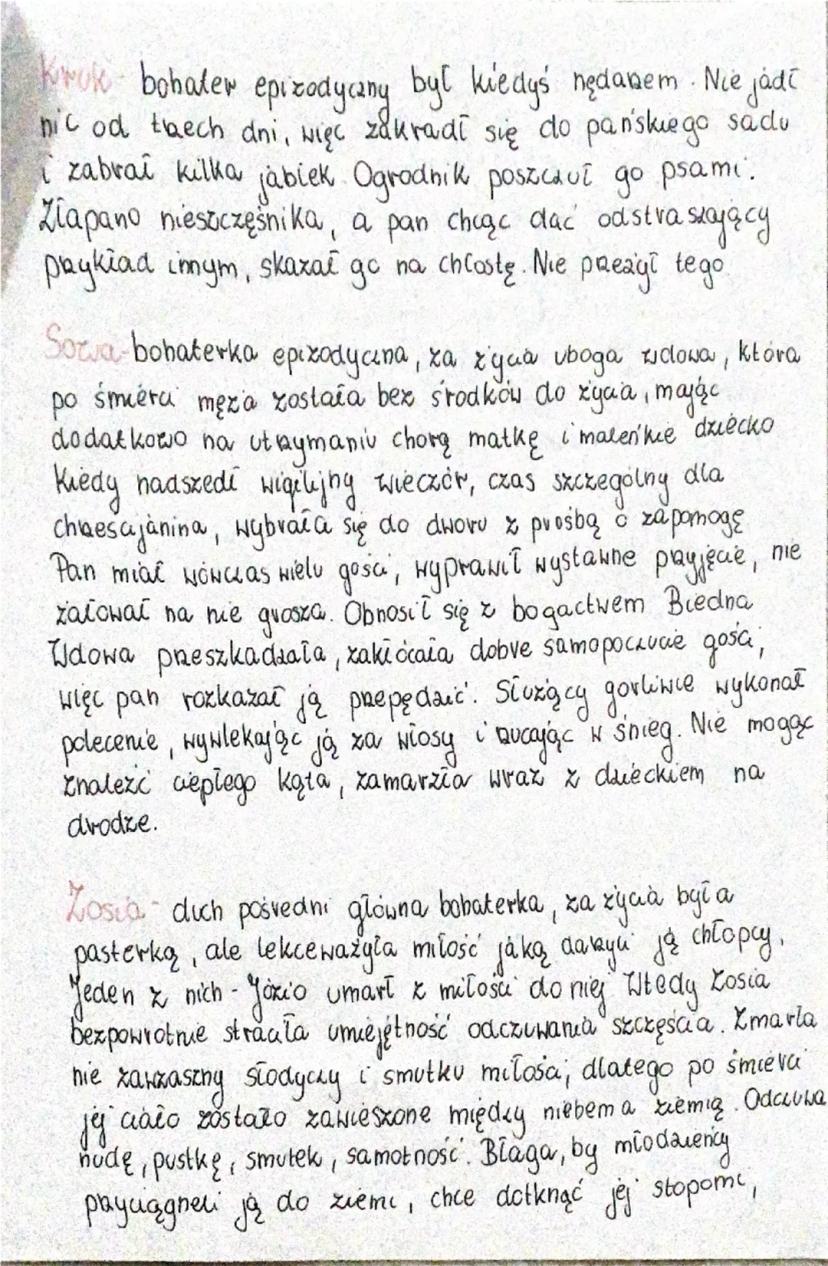 Kruk - bohater epizodyczny był kiedyś nędzarzem. Nie jadł
nic od trzech dni, więc zakradł się do pańskiego sadu
i zabrał kilka jabłek. Ogrodnik poszczuł go psami.
Złapano nieszczęśnika, a pan chcąc dać odstraszający
przykład innym, skazał go na chłostę. Nie przeżył tego.
Sowa - bohaterka epizodyczna, za życia uboga wdowa, która
po śmierci męża została bez środków do życia, mając
dodatkowo na utrzymaniu chorą matkę i maleńkie dziecko
Kiedy nadszedł wigilijny wieczór, czas szczególny dla
chrześcijanina, wybrała się do dworu z prośbą o zapomogę
Pan miał wówczas wielu gości, wyprawił wystawne przyjęcie, nie
żałował na nie grosza. Obnosił się z bogactwem Biedna
Wdowa przeszkadzała, zakłócała dobre samopoczucie gości,
więc pan rozkazał ją przepędzić. Służący gorliwie wykonał
polecenie, wywlekając ją za włosy i rzucając w śnieg. Nie mogąc
znaleźć ciepłego kąta, zamarzła wraz z dzieckiem na
drodze.
Zosia - duch pośredni główna bohaterka, za życia była
pasterką, ale lekceważyła miłość jaką darzyli ją chłopcy.
Jeden z nich - Józio umarł z miłości do niej Wtedy Zosia
bezpowrotnie straciła umiejętność odczuwania szczęścia. Zmarła
nie zawrzaszny słodyczy i smutku miłości, dlatego po śmierci
jej ciało zostało zawieszone między niebem a ziemią. Odczuwa
nudę, pustkę, smutek, samotność. Błaga, by młodzieńcy
przyciągneli ją do ziemi, chce dotknąć jej stopomi,